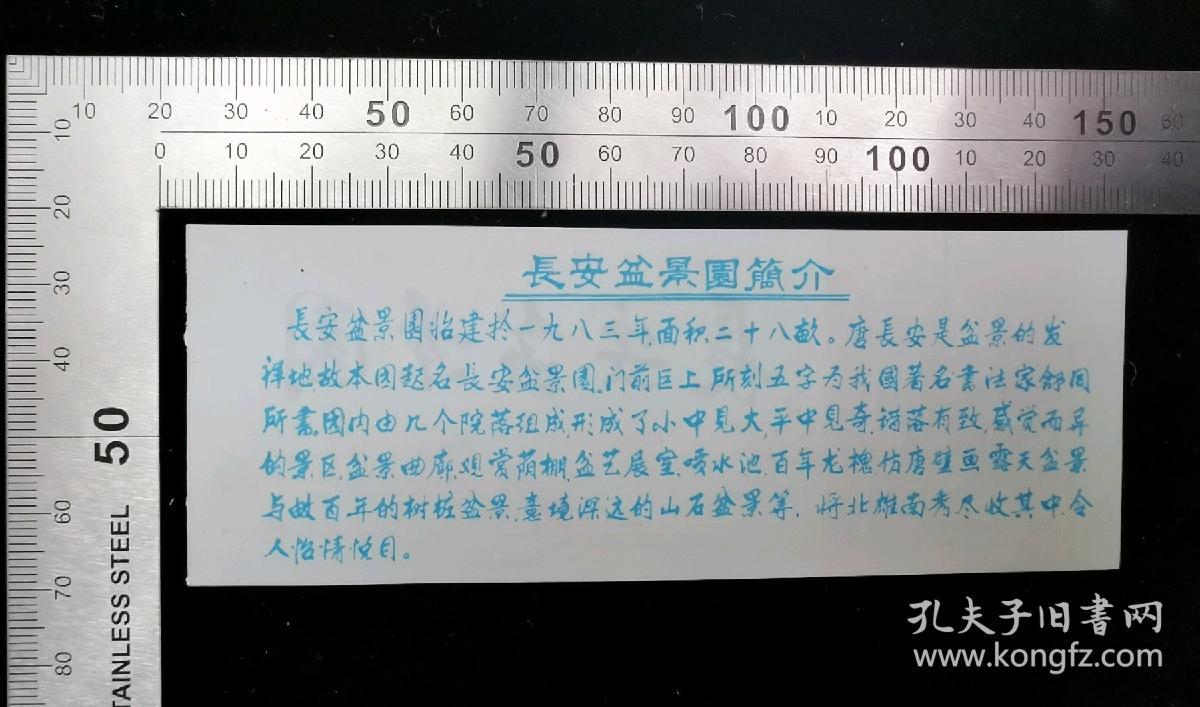 10 20 30 40 50 60 70 80 90 100 10 20 30 40 150 60
0 10 20 30 40 50 60 70 80 90 100 10 20 30 40
10
20
30
40
50
60
70
80
STAINLESS STEEL
長安盆景園簡介
長安盆景園始建於一九八三年,面积二十八畝。唐長安是盆景的发
祥地,故本园起名長安盆景園,门前巨上所刻五字为我國著名書法家舒同
所書。園内由几个院落组成,形成了小中見大,平中見奇,错落有致,感觉而异
的景区,盆景曲廊,观赏荫棚,盆艺展室,喷水池,百年龙槐,仿唐壁画,露天盆景
与数百年的树桩盆景,意境深远的山石盆景等,将北雄南秀尽收其中,令
人怡情悦目。
孔夫子旧書网
www.kongfz.com